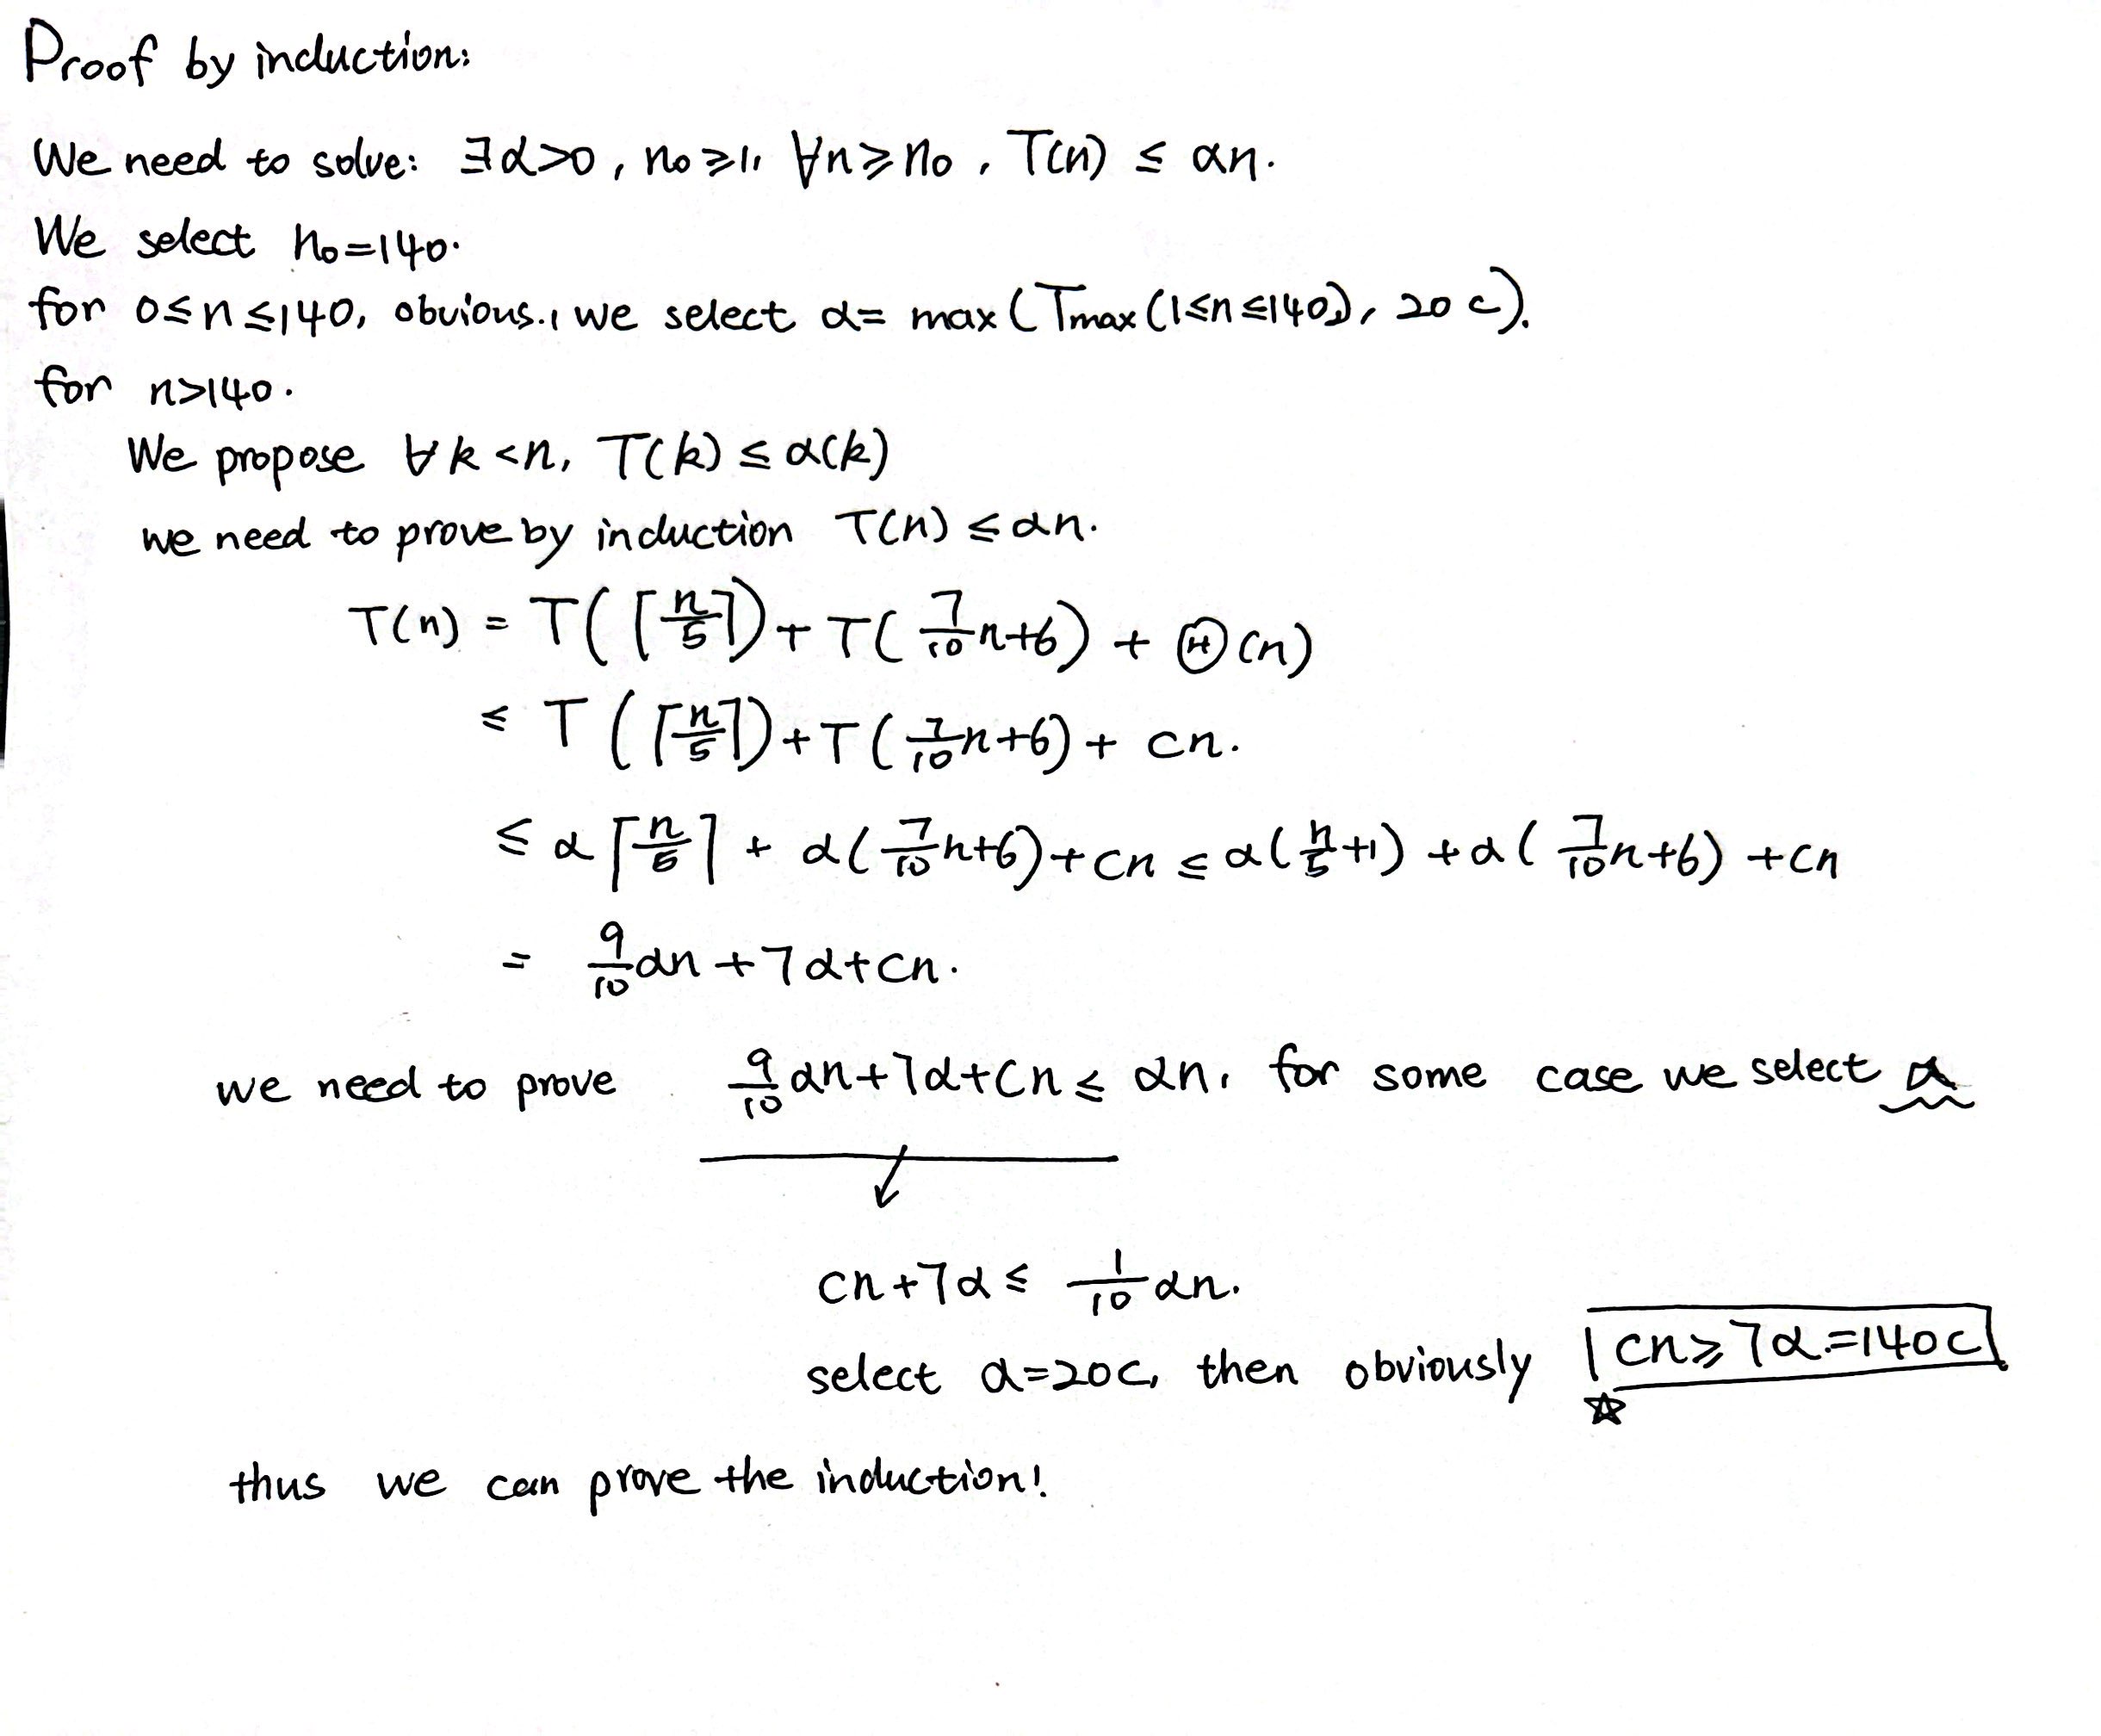 Proof by induction:
We need to solve: ∃α>0, n₀≥1, ∀n≥n₀, T(n) ≤ αn.
We select n₀=140.
for 0≤n≤140, obvious., we select α= max (Tmax (1≤n≤140), 20c).
for n>140.
We propose ∀k<n, T(k) ≤ α(k)
we need to prove by induction T(n) ≤ αn.
T(n) = T(⌈n/5⌉) + T(7/10n+6) + Θ(n)
≤ T(⌈n/5⌉) + T(7/10n+6) + cn.
≤ α⌈n/5⌉ + α(7/10n+6) + cn ≤ α(n/5+1) + α(7/10n+6) + cn
= 9/10αn + 7α + cn.
we need to prove 9/10αn+7α+cn ≤ αn, for some case we select α
cn+7α ≤ 1/10αn.
select α=20c, then obviously cn≥7α=140c
thus we can prove the induction!